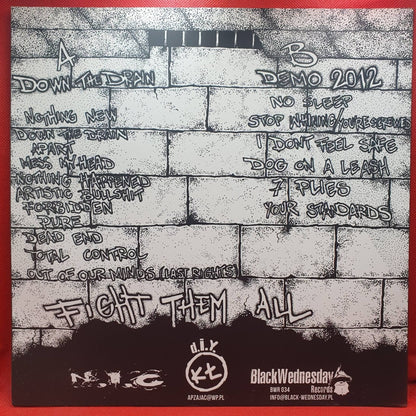 A
DOWN THE DRAIN
NOTHING NEW
DOWN THE DRAIN
APART
MESS MY HEAD
NOTHING HAPPENED
ARTISTIC BULLSHIT
FORBIDDEN
PURE
DEAD END
TOTAL CONTROL
OUT OF OUR MINDS (LAST RIGHTS)
B
DEMO 2012
NO SLEEP
STOP WHINING/YOU'RE SCREWED
I DON'T FEEL SAFE
DOG ON A LEASH
7 PLIES
YOUR STANDARDS
FIGHT THEM ALL
N.I.C
d.i.Y
KŁ
APZAJAC@WP.PL
BlackWednesday
Records
BWR 034
INFO@BLACK-WEDNESDAY.PL